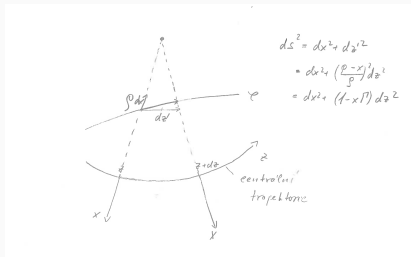 ds² = dx² + dz'²
= dx² + (ρ - x / ρ)² dz²
= dx² + (1 - xΓ)² dz²
φ
dz'
z
z
z+dz
centrální
trajektorie
x
x